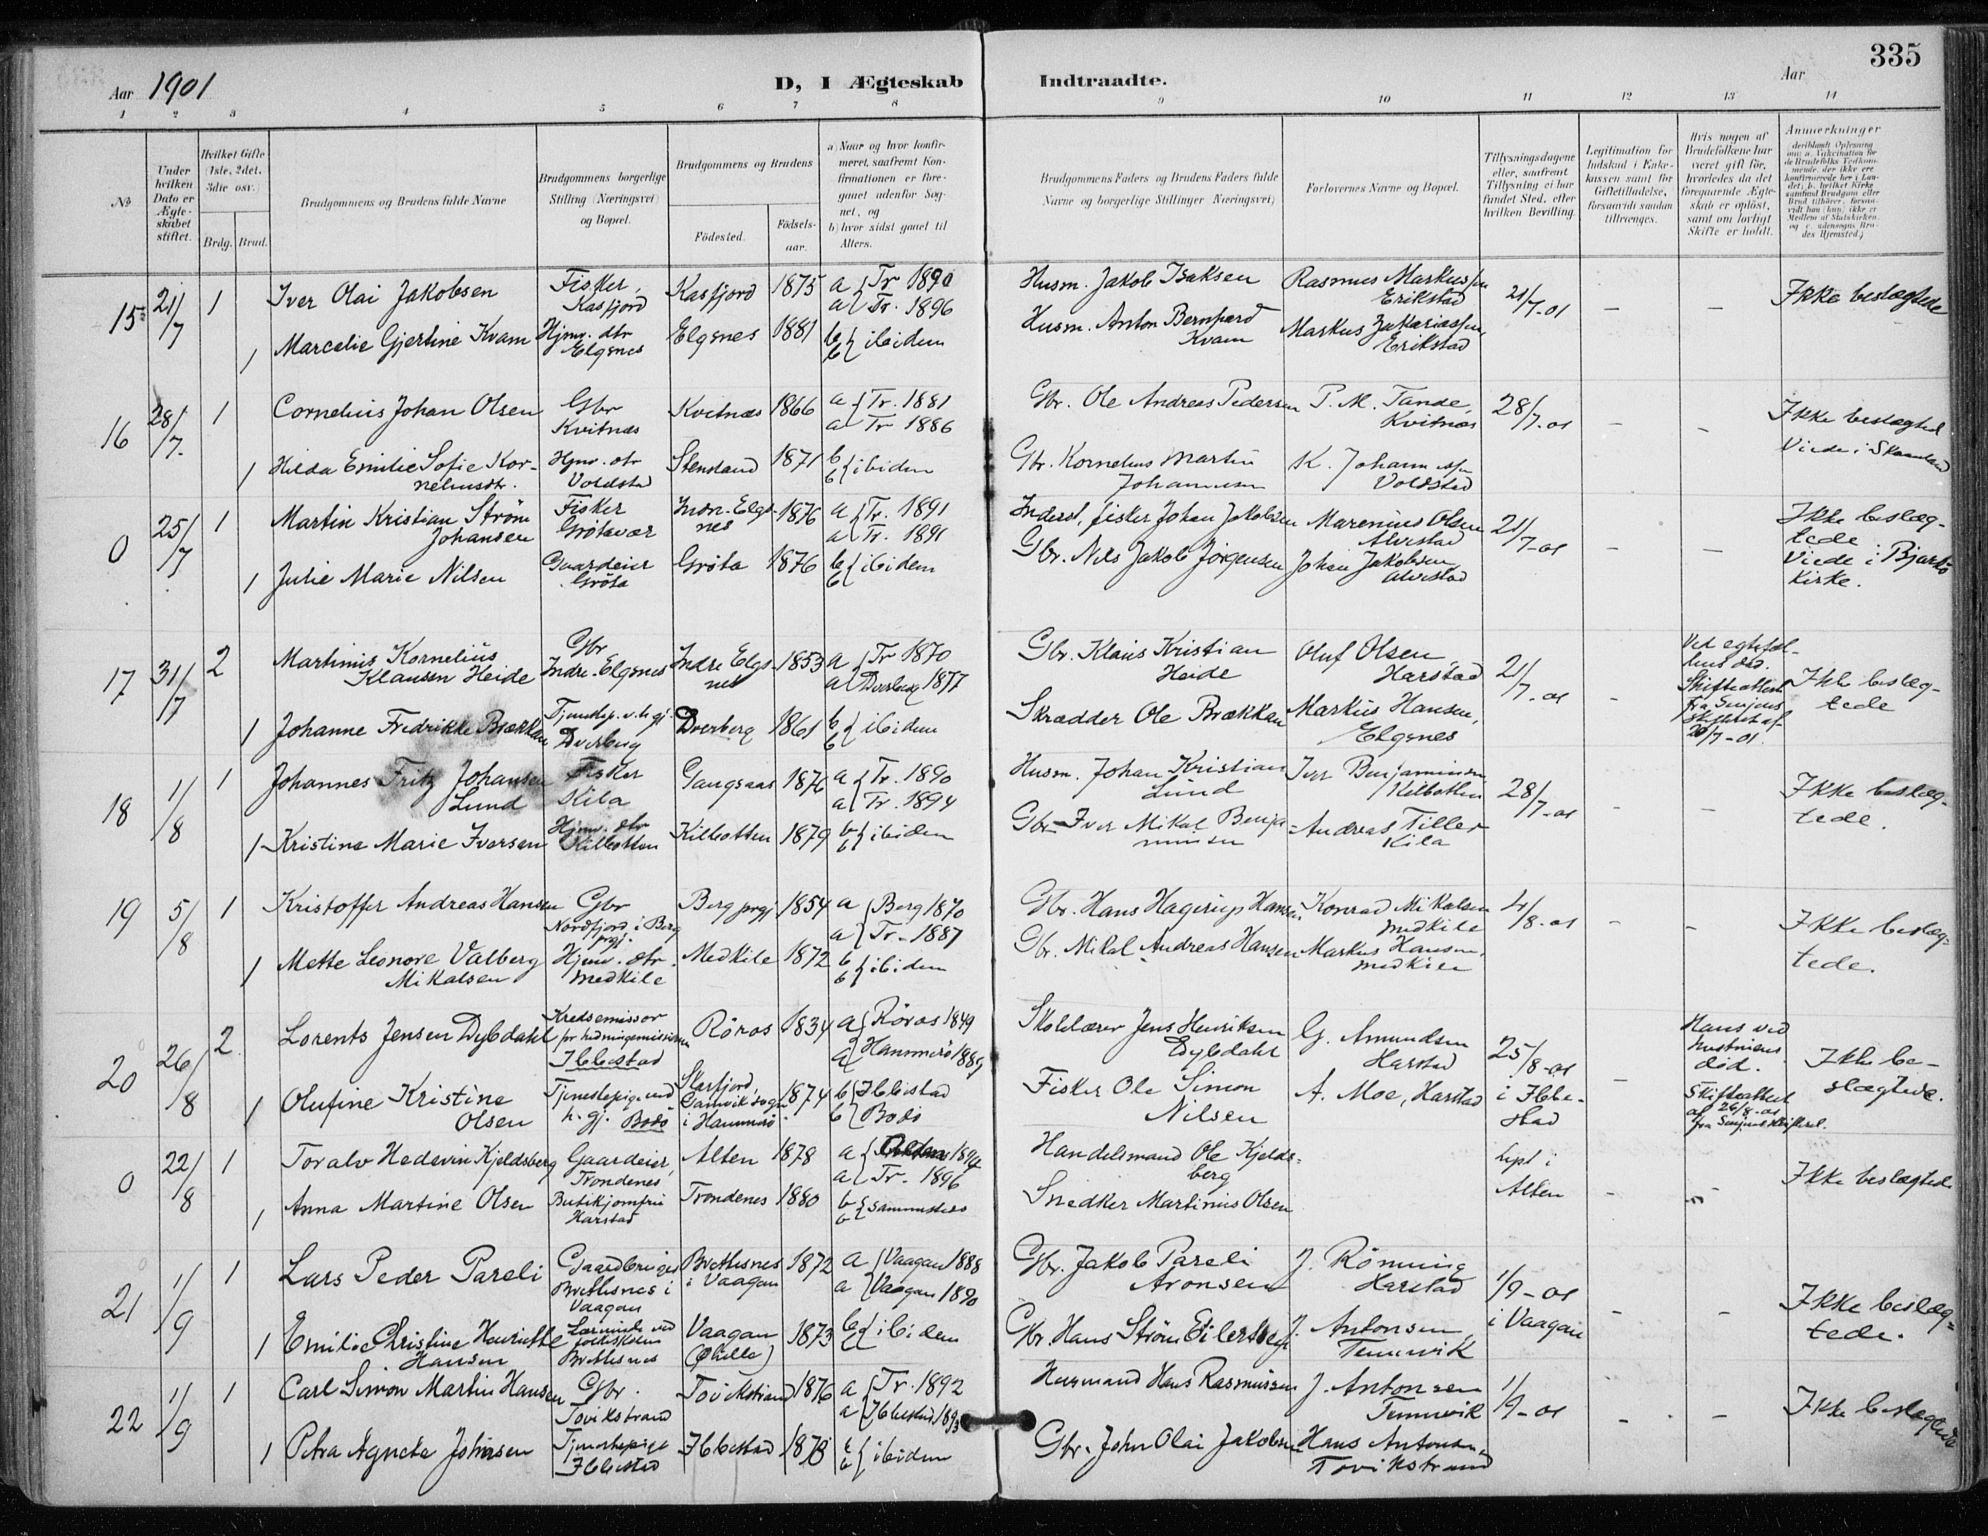 335
Aar 1901
D, I Ægteskab Indtraadte.
Aar
1 2 3 4 5 6 7 8 9 10 11 12 13 14
№
Under hvilken Dato er Ægteskabet stiftet.
Hvilket Gifte (1ste, 2det, 3die osv.)
Brdg. Brud.
Brudgommens og Brudens fulde Navne
Brudgommens borgerlige Stilling (Næringsvei) og Bopæl.
Brudgommens og Brudens
Fødested.
Fødselsaar.
a) Naar og hvor konfirmeret, saafremt Konfirmationen er foregaaet udenfor Sognet, og
b) hvor sidst gaaet til Alters.
Brudgommens Faders og Brudens Faders fulde Navne og borgerlige Stillinger (Næringsvei)
Forlovernes Navne og Bopæl.
Tillysningsdagene eller, saafremt Tillysning ei har fundet Sted, efter hvilken Bevilling.
Legitimation for Indskud i Enkekassen samt for Giftetilladelse, forsaavidt saadan tiltrænges.
Hvis nogen af Brudefolkene har været gift før, hvorledes da det foregaaende Ægteskab er opløst, samt om lovligt Skifte er holdt.
Anmerkninger
15 21/7 1 Iver Olai Jakobsen Fisker, Kasfjord Kasfjord 1875 a Tr 1890 a Tr. 1896 Husm. Jakob Isaksen Rasmus Markussen Erikstad 21/7-01 - - Ikke beslægtede
1 Marcelie Gjertine Kvam Hjmv. dtr Elgsnes Elgsnes 1881 b b ibidem Husm. Anton Bernhard Kvam Markus Zakariassen, Erikstad
16 28/7 1 Cornelius Johan Olsen Gbr Kvitnæs Kvitnæs 1866 a Tr. 1881 a Tr 1886 Gbr. Ole Andreas Pedersen P. M. Tande, Kvitnæs 28/7-01 - - Ikke beslægted
1 Hilda Emilie Sofie Korneliusdtr. Hjmv. dtr Voldstad Stensland 1871 b b ibidem Gbr. Kornelius Martin Johannesen K. Johannessen Voldstad Viede i Skaanland
0 25/7 1 Martin Kristian Strøm Johansen Fisker Grøtavær Indr. Elgsnes 1876 a Tr. 1891 a Tr. 1891 Inderst, fisker Johan Jakobsen Marenius Olsen Alvestad 21/7-01 - - Ikke beslægtede
1 Julie Marie Nilsen Gaardeier Grøta Grøta 1876 b b ibidem Gbr. Nils Jakob Jørgensen Johan Jakobsen Alvestad Viede i Bjarkø Kirke.
17 31/7 2 Martinus Kornelius Klausen Heide Gbr Indre. Elgsnes Indre Elgsnes 1853 a Tr 1870 a Dverberg 1877 Gbr. Klaus Kristian Heide Oluf Olsen Harstad 21/7-01 Ved egtefællens død. Skifteattest fra Senjens 20/7-01. Ikke beslægtede
1 Johanne Fredrikke Brækkan Tjenstep. v. h gj Dverberg Dverberg 1861 b b ibidem Skrædder Ole Brækkan Markus Hansen, Elgsnes
18 1/8 1 Johannes Fritz Johansen Lund Fisker Kila Gangsaas 1876 a Tr. 1890 a Tr. 1894 Husm. Johan Kristian Lund Iver Benjaminsen Kilbotten 28/7-01 - - Ikke beslægtede.
1 Kristine Marie Iversen Hjmv. dtr Kilbotten Kilbotten 1879 b b ibidem Gbr Iver Mikal Benjaminsen Andreas Tiller Kila
19 5/8 1 Kristoffer Andreas Hansen Gbr Nordfjord i Berg prgj. Berg prgj 1854 a Berg 1870 a Tr. 1887 Gbr. Hans Hagerup Hansen Konrad Mikalsen Medkile 4/8-01 - - Ikke beslægtede.
1 Mette Leonore Valberg Mikalsen Hjmv. dtr. Medkile Medkile 1872 b b ibidem Gbr. Mikal Andreas Hansen Markus Hansen, Medkilen
20 26/8 2 Lorents Jensen Dybdahl Kredsemissær for hedningemissionen Ibbestad Røros 1834 a Røros 1849 a Hammerø 1889 Skolelærer Jens Henriksen Dybdahl G. Amundsen Harstad 25/8-01 i Ibbestad - Hans ved hustruens død. Skifteattest af 26/8-01 fra Senjens skifteret. Ikke beslægtede.
1 Olufine Kristine Olsen Tjenestepige ved h. gj. Bodø i Hammerø 1874 b Ibbestad b Bodø Fisker Ole Simon Nilsen A. Moe, Harstad
0 22/8 1 Toralv Hedevin Kjeldsberg Gaardeier, Trondenes Alten 1878 a 1894 a Tr. 1896 Handelsmand Ole Kjeldsberg lyst i Alten - - Ikke beslægtede
1 Anna Martine Olsen Butikjomfru Harstad Trondenes 1880 b b sammesteds Snedker Martinus Olsen
21 1/9 1 Lars Peder Pareli Gaardbruger Brettesnes i Vaagan Brettesnes i Vaagan 1872 a Vaagan 1888 a Vaagan 1890 Gbr. Jakob Pareli Aronsen J. Rønning Harstad 1/9-01 i Vaagan - - Ikke beslægtede.
1 Emilie Christine Henriette Hansen Lærerinde ved folkeskolen Brettesnes Vaagan 1873 b b ibidem Gbr. Hans Strøm Eilertsen J. Antonsen, Tennevik
22 1/9 1 Carl Simon Martin Hansen Gbr. Tovikstrand Tovikstrand 1876 a Tr. 1892 a Ibbestad 1893 Husmand Hans Rasmussen J. Antonsen Tennevik 1/9-01 - - Ikke beslægtede
1 Petra Agneta Johnsen Tjenestepige Ibbestad Ibbestad 1878 b b ibidem Gbr. John Olai Jakobsen Hans Antonsen Tovikstrand